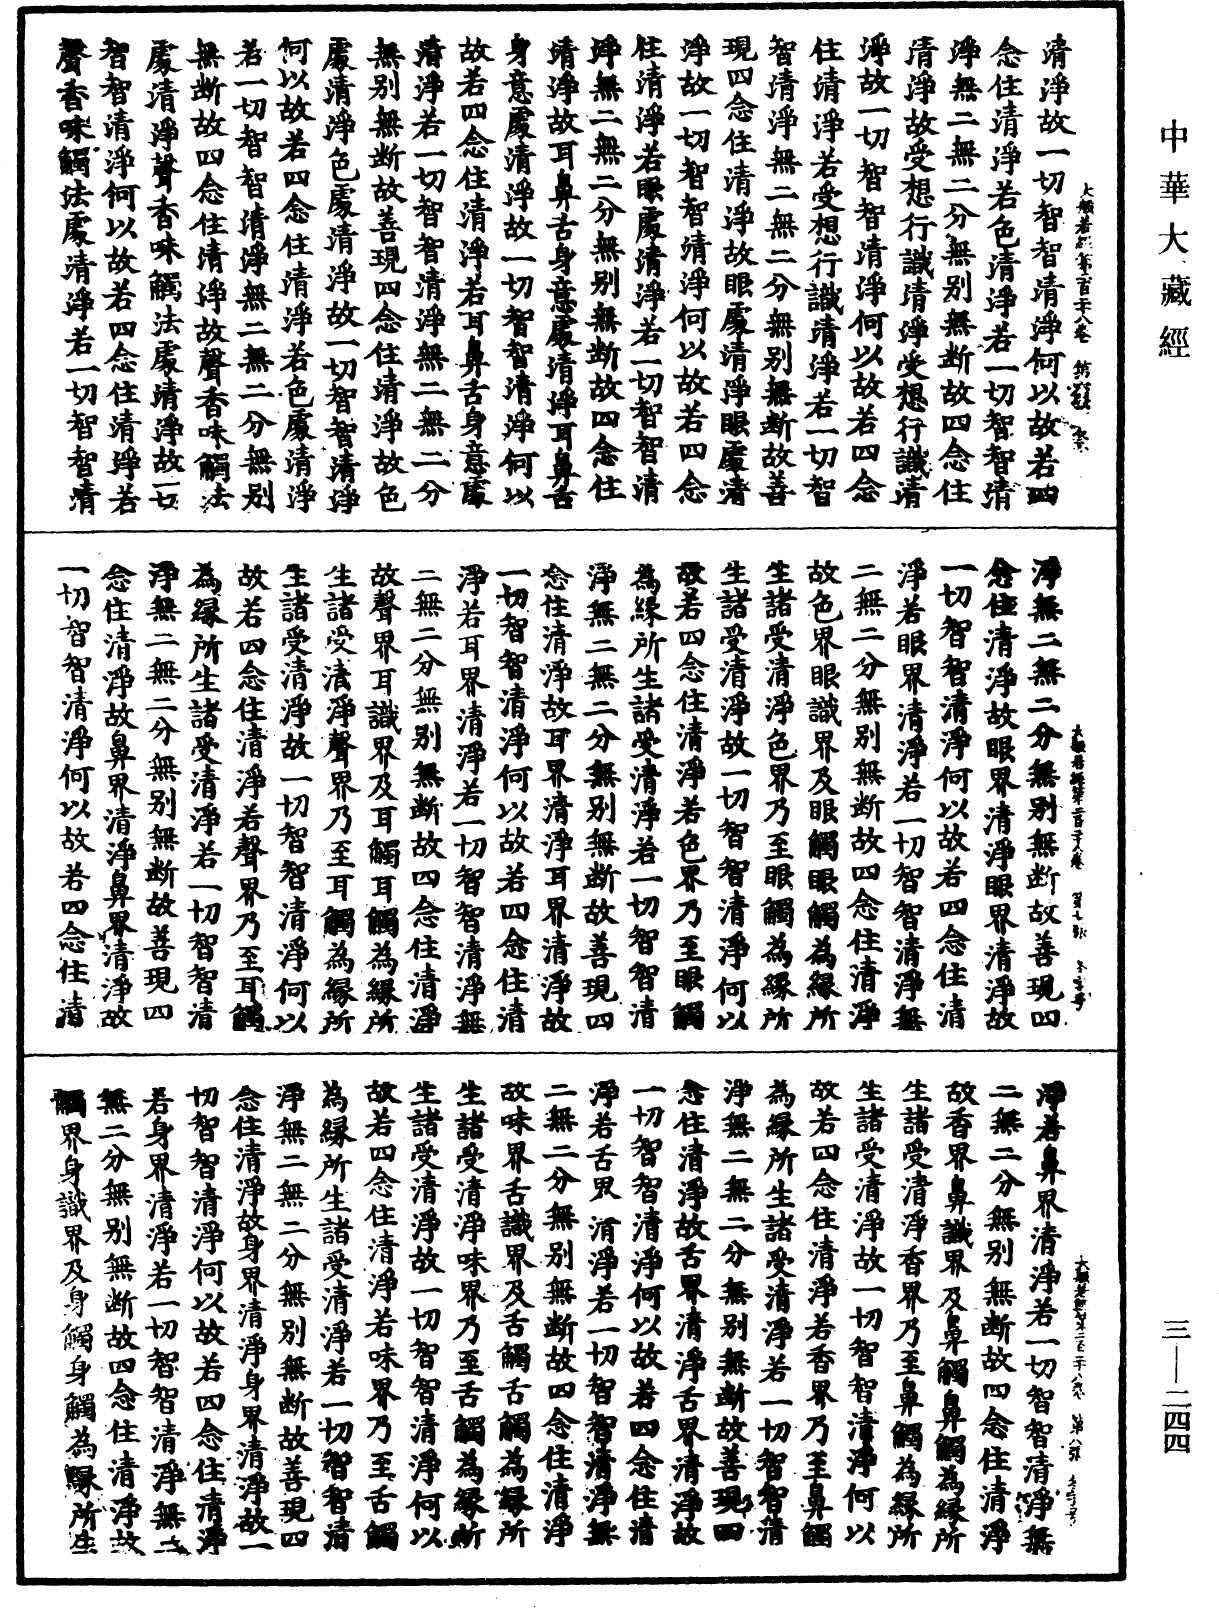 中華大藏經
清淨故一切智智清淨何以故若四
念住清淨若色清淨若一切智智清
淨無二無二分無別無斷故四念住
清淨故受想行識清淨受想行識清
淨故一切智智清淨何以故若四念
住清淨若受想行識清淨若一切智
智清淨無二無二分無別無斷故善
現四念住清淨故眼處清淨眼處清
淨故一切智智清淨何以故若四念
住清淨若眼處清淨若一切智智清
淨無二無二分無別無斷故四念住
清淨故耳鼻舌身意處清淨耳鼻舌
身意處清淨故一切智智清淨何以
故若四念住清淨若耳鼻舌身意處
清淨若一切智智清淨無二無二分
無別無斷故善現四念住清淨故色
處清淨色處清淨故一切智智清淨
何以故若四念住清淨若色處清淨
若一切智智清淨無二無二分無別
無斷故四念住清淨故聲香味觸法
處清淨聲香味觸法處清淨故一切
智智清淨何以故若四念住清淨若
聲香味觸法處清淨若一切智智清
淨無二無二分無別無斷故善現四
念住清淨故眼界清淨眼界清淨故
一切智智清淨何以故若四念住清
淨若眼界清淨若一切智智清淨無
二無二分無別無斷故四念住清淨
故色界眼識界及眼觸眼觸為緣所
生諸受清淨色界乃至眼觸為緣所
生諸受清淨故一切智智清淨何以
故若四念住清淨若色界乃至眼觸
為緣所生諸受清淨若一切智智清
淨無二無二分無別無斷故善現四
念住清淨故耳界清淨耳界清淨故
一切智智清淨何以故若四念住清
淨若耳界清淨若一切智智清淨無
二無二分無別無斷故四念住清淨
故聲界耳識界及耳觸耳觸為緣所
生諸受清淨聲界乃至耳觸為緣所
生諸受清淨故一切智智清淨何以
故若四念住清淨若聲界乃至耳觸
為緣所生諸受清淨若一切智智清
淨無二無二分無別無斷故善現四
念住清淨故鼻界清淨鼻界清淨故
一切智智清淨何以故若四念住清
淨若鼻界清淨若一切智智清淨無
二無二分無別無斷故四念住清淨
故香界鼻識界及鼻觸鼻觸為緣所
生諸受清淨香界乃至鼻觸為緣所
生諸受清淨故一切智智清淨何以
故若四念住清淨若香界乃至鼻觸
為緣所生諸受清淨若一切智智清
淨無二無二分無別無斷故善現四
念住清淨故舌界清淨舌界清淨故
一切智智清淨何以故若四念住清
淨若舌界清淨若一切智智清淨無
二無二分無別無斷故四念住清淨
故味界舌識界及舌觸舌觸為緣所
生諸受清淨味界乃至舌觸為緣所
生諸受清淨故一切智智清淨何以
故若四念住清淨若味界乃至舌觸
為緣所生諸受清淨若一切智智清
淨無二無二分無別無斷故善現四
念住清淨故身界清淨身界清淨故一
切智智清淨何以故若四念住清淨
若身界清淨若一切智智清淨無二
無二分無別無斷故四念住清淨故
觸界身識界及身觸身觸為緣所生
三—二四四